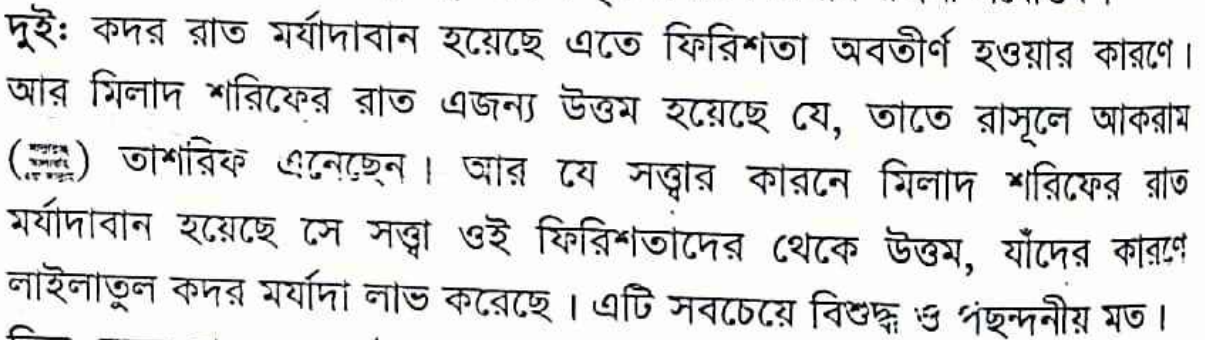 দুই: কদর রাত মর্যাদাবান হয়েছে এতে ফিরিশতা অবতীর্ণ হওয়ার কারণে।
আর মিলাদ শরিফের রাত এজন্য উত্তম হয়েছে যে, তাতে রাসূলে আকরাম
() তাশরিফ এনেছেন। আর যে সত্ত্বার কারনে মিলাদ শরিফের রাত
মর্যাদাবান হয়েছে সে সত্ত্বা ওই ফিরিশতাদের থেকে উত্তম, যাঁদের কারণে
লাইলাতুল কদর মর্যাদা লাভ করেছে। এটি সবচেয়ে বিশুদ্ধ ও পছন্দনীয় মত।